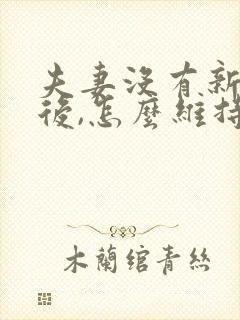 夫妻沒有新
後,怎麼維持
木蘭綰青絲